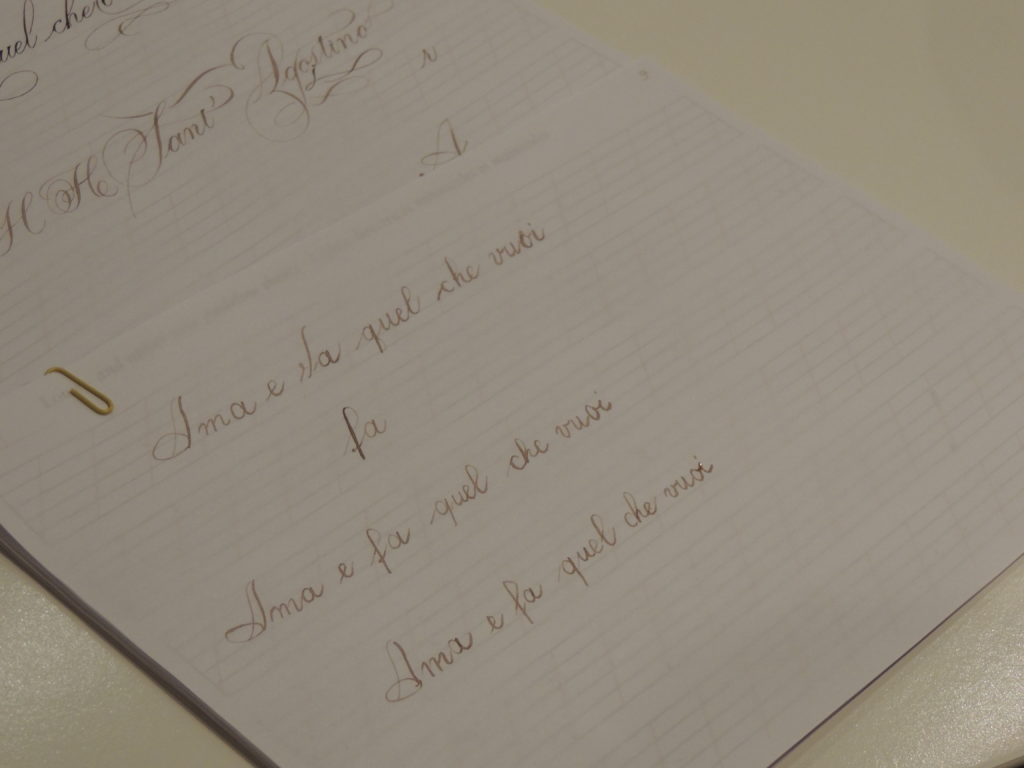 quel che
H H Sant' Agostino
r
A
Ama e fa quel che vuoi
fa
Ama e fa quel che vuoi
Ama e fa quel che vuoi